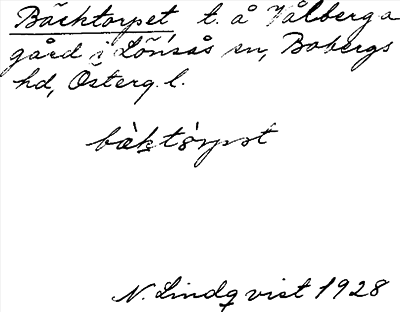 Bäcktorpet, t. å Vålberga
gård i Lönsås sn, Bobergs
hd, Österg. l.
bὰktɷ̀rpət
N. Lindqvist 1928